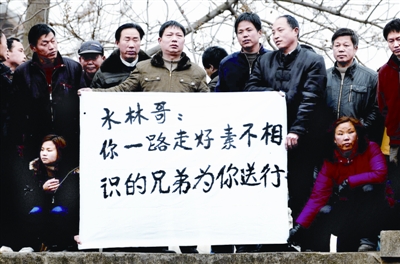 水林哥：
你一路走好素不相
识的兄弟为你送行